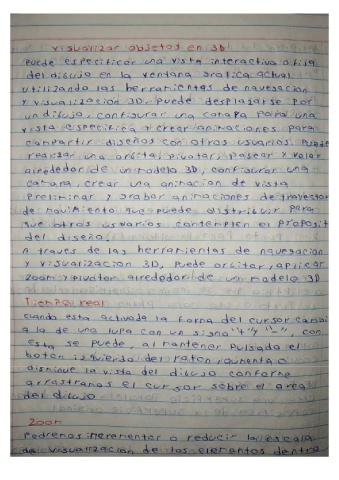 visualizar objetos en 3D
Puede especificar una vista interactiva o fija
del dibujo en la ventana grafica actual
utilizando las herramientas de navegacion
y visualización 3D. Puede desplazarse por
un dibujo, configurar una camara para una
vista especifica y crear animaciones para
compartir diseños con otros usuarios. Puede
realizar una orbita, pivotar, pasear y volar
alrededor de un modelo 3D, configurar una
camara, crear una animacion de vista
Preliminar y grabar animaciones de trayector
de movimiento que puede distribuir para
que otros usuarios contemplen el proposit
del diseño.
A través de las herramientas de navegacion
y visualización 3D, puede orbitar, aplicar
zoom y pivotar alrededor de un modelo 3D
Tiempo real
cuando esta activado la forma del cursor cambi
a la de una lupa con un signo "+" y "-", con
esta se puede, al mantener pulsado el
boton izquierdo del raton, aumenta o
disminue la vista del dibujo conforme
arrastramos el cursor sobre el area
del dibujo
Zoom
Podremos incrementar o reducir la escala
de visualización de los elementos dentro